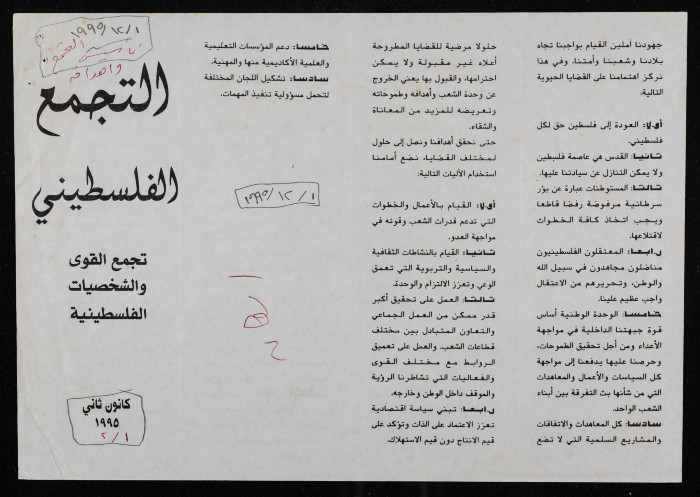 ١٩٩٥/١٢/١
تأسيس التجمع
وأهدافه
التجمع
الفلسطيني
تجمع القوى
والشخصيات
الفلسطينية
كانون ثاني
١٩٩٥
٢/١
جهودنا آملين القيام بواجبنا تجاه
بلادنا وشعبنا وأمتنا. وفي هذا
نركز اهتمامنا على القضايا الحيوية
التالية:
أولا: العودة إلى فلسطين حق لكل
فلسطيني.
ثانيا: القدس هي عاصمة فلسطين
ولا يمكن التنازل عن سيادتنا عليها.
ثالثا: المستوطنات عبارة عن بؤر
سرطانية مرفوضة رفضا قاطعا
ويجب اتخاذ كافة الخطوات
لاقتلاعها.
رابعا: المعتقلون الفلسطينيون
مناضلون مجاهدون في سبيل الله
والوطن، وتحريرهم من الاعتقال
واجب عظيم علينا.
خامسا: الوحدة الوطنية أساس
قوة جبهتنا الداخلية في مواجهة
الأعداء ومن أجل تحقيق الطموحات،
وحرصنا عليها يدفعنا إلى مواجهة
كل السياسات والأعمال والمعاهدات
التي من شأنها بث التفرقة بين أبناء
الشعب الواحد.
سادسا: كل المعاهدات والاتفاقات
والمشاريع السلمية التي لا تضع
حلولا مرضية للقضايا المطروحة
أعلاه غير مقبولة ولا يمكن
احترامها، والقبول بها يعني الخروج
عن وحدة الشعب وأهدافه وطموحاته
وتعريضه للمزيد من المعاناة
والشقاء.
حتى نحقق أهدافنا ونصل إلى حلول
لمختلف القضايا، نضع أمامنا
استخدام الآليات التالية:
أولا: القيام بالأعمال والخطوات
التي تدعم قدرات الشعب وقوته في
مواجهة العدو.
ثانيا: القيام بالنشاطات الثقافية
والسياسية والتربوية التي تعمق
الوعي وتعزز الالتزام والوحدة.
ثالثا: العمل على تحقيق أكبر
قدر ممكن من العمل الجماعي
والتعاون المتبادل بين مختلف
قطاعات الشعب. والعمل على تعميق
الروابط مع مختلف القوى
والفعاليات التي تشاطرنا الرؤية
والموقف داخل الوطن وخارجه.
رابعا: تبني سياسة اقتصادية
تعزز الاعتماد على الذات وتؤكد على
قيم الانتاج دون قيم الاستهلاك.
خامسا: دعم المؤسسات التعليمية
والعلمية الأكاديمية منها والمهنية.
سادسا: تشكيل اللجان المختلفة
لتحمل مسؤولية تنفيذ المهمات.
١٩٩٥/١٢/١